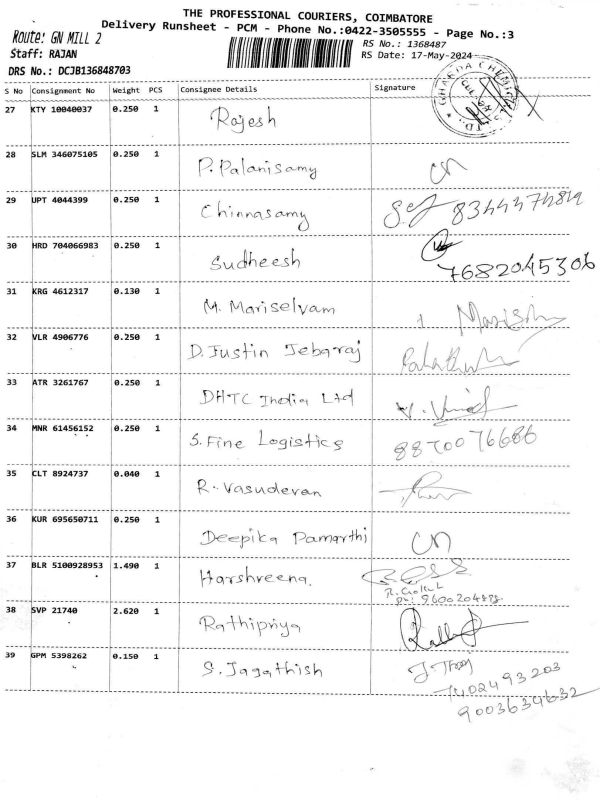 THE PROFESSIONAL COURIERS, COIMBATORE
Delivery Runsheet - PCM - Phone No.:0422-3505555 - Page No.:3
Route: GN MILL 2
RS No.: 1368487
Staff: RAJAN
RS Date: 17-May-2024
DRS No.: DCJB136848703
S No Consignment No Weight PCS Consignee Details Signature
GHARDA CHEMICALS LTD.
27 KTY 10040037 0.250 1 Rajesh
28 SLM 346075105 0.250 1 P. Palanisamy
29 UPT 4044399 0.250 1 Chinnasamy
30 HRD 704066983 0.250 1 Sudheesh 7682045306
31 KRG 4612317 0.130 1 M. Mariselvam
32 VLR 4906776 0.250 1 D. Justin Jebaraj
33 ATR 3261767 0.250 1 DHTC India Ltd
34 MNR 61456152 0.250 1 S. Fine Logistics 8870076686
35 CLT 8924737 0.040 1 R. Vasudevan
36 KUR 695650711 0.250 1 Deepika Pamarthi
37 BLR 5100928953 1.490 1 Harshreena.
38 SVP 21740 2.620 1 Rathipriya
39 GPM 5398262 0.150 1 S. Jagathish
7402493203
9003634632